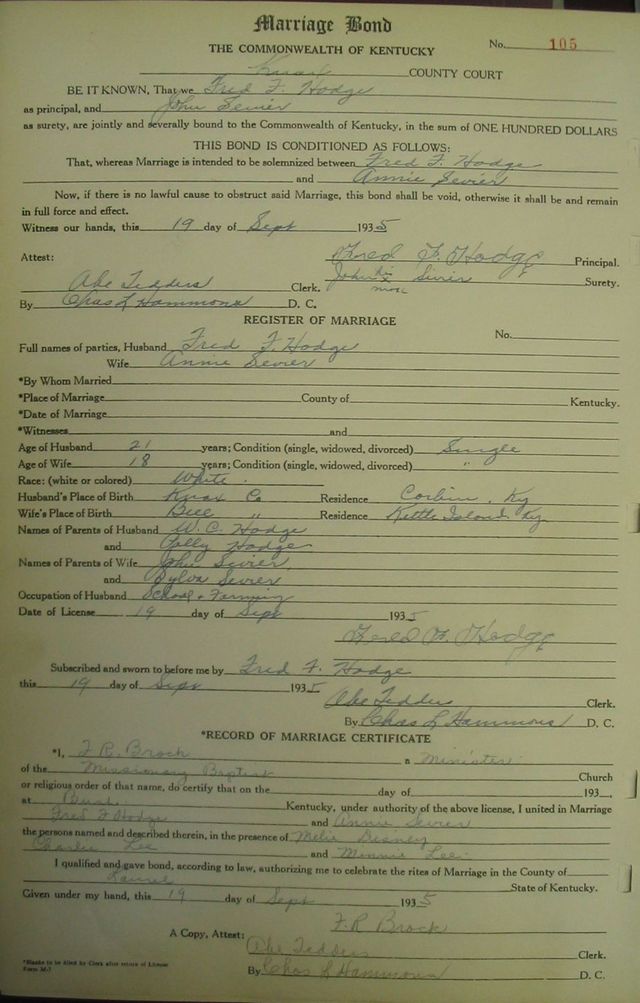 Marriage Bond
THE COMMONWEALTH OF KENTUCKY No. 105
Knox COUNTY COURT
BE IT KNOWN, That we Fred F. Hodge
as principal, and John Sevier
as surety, are jointly and severally bound to the Commonwealth of Kentucky, in the sum of ONE HUNDRED DOLLARS
THIS BOND IS CONDITIONED AS FOLLOWS:
That, whereas Marriage is intended to be solemnized between Fred F. Hodge
and Annie Sevier
Now, if there is no lawful cause to obstruct said Marriage, this bond shall be void, otherwise it shall be and remain
in full force and effect.
Witness our hands, this 19 day of Sept 1935
Attest: Fred F. Hodge Principal.
Abe Tedders Clerk. John his x Sevier Surety.
mark
By Chas L Hammons D. C.
REGISTER OF MARRIAGE
No.
Full names of parties, Husband Fred F. Hodge
Wife Annie Sevier
*By Whom Married
*Place of Marriage County of Kentucky.
*Date of Marriage
*Witnesses and
Age of Husband 21 years; Condition (single, widowed, divorced) Single
Age of Wife 18 years; Condition (single, widowed, divorced) "
Race: (white or colored) White
Husband's Place of Birth Knox Co Residence Corbin, Ky
Wife's Place of Birth Bell " Residence Kettle Island Ky
Names of Parents of Husband W. C. Hodge
and Polly Hodge
Names of Parents of Wife John Sevier
and Sylva Sevier
Occupation of Husband School & Farming
Date of License 19 day of Sept 1935
Fred F. Hodge
Subscribed and sworn to before me by Fred F. Hodge
this 19 day of Sept 1935
Abe Tedders Clerk.
By Chas L Hammons D. C.
*RECORD OF MARRIAGE CERTIFICATE
*I, F. R. Brock a Minister
of the Missionary Baptist Church
or religious order of that name, do certify that on the day of 193
at Bush Kentucky, under authority of the above license, I united in Marriage
Fred F Hodge and Annie Sevier
the persons named and described therein, in the presence of
Charlie Lee and Minnie Lee
I qualified and gave bond, according to law, authorizing me to celebrate the rites of Marriage in the County of
Laurel State of Kentucky.
Given under my hand, this 19 day of Sept 1935
F. R Brock
A Copy, Attest: Abe Tedders Clerk.
By Chas L Hammons D. C.
*Blanks to be filled by Clerk after return of License
Form M-7